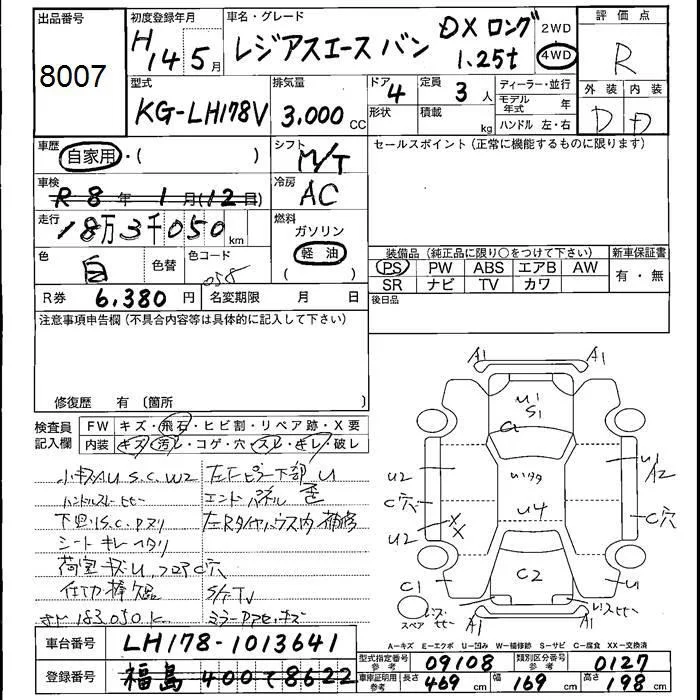 出品番号 8007
初度登録年月 H14 5月
車名・グレード レジアスエース バン DX ロング 1.25t
2WD 4WD
評価点 R
外装 内装 D D
型式 KG-LH178V
排気量 3,000 CC
ドア 4 形状
定員 3人 積載 kg
ディーラー・並行
モデル年式 年
ハンドル 左・右
車歴 自家用・( )
シフト M/T
セールスポイント (正常に機能するものに限ります)
車検 R8年 1月(12日)
冷房 AC
走行 18万3千050 km
燃料 ガソリン 軽油 ( )
色 白 色替 色コード 058
装備品 (純正品に限り○をつけて下さい) 新車保証書
PS PW ABS エアB AW 有・無
SR ナビ TV カワ
R券 6,380円 名変期限 月 日
後日品
注意事項申告欄 (不具合内容等は具体的に記入して下さい)
修復歴 有 (箇所
検査員記入欄
FW キズ・飛石・ヒビ割・リペア跡・X要
内装 キズ・汚レ・コゲ・穴・スレ・キレ・破レ
小キズAU S.C.W2 左F.ピラー下部U
エンドパネル 歪
下回りS.C.Pヌリ 左Rタイヤハウス内補修
シート キレ ヘタリ
荷室キズU,フロアC穴
仕切棒欠品 S/F TV
183,050K
A1 A1
U1 S1
U2 U4 A2
C穴 C穴
U2 XX U
C1 C2
スペア
A1 A1
A=キズ E=エクボ U=凹み W=補修跡 S=サビ C=腐食 XX=交換済
車台番号 LH178-1013641
登録番号 福島 400 て 8622
型式指定番号 参考 09108 類別区分番号 参考 0127
車庫証明用 参考 長さ 469 cm 幅 169 cm 高さ 198 cm